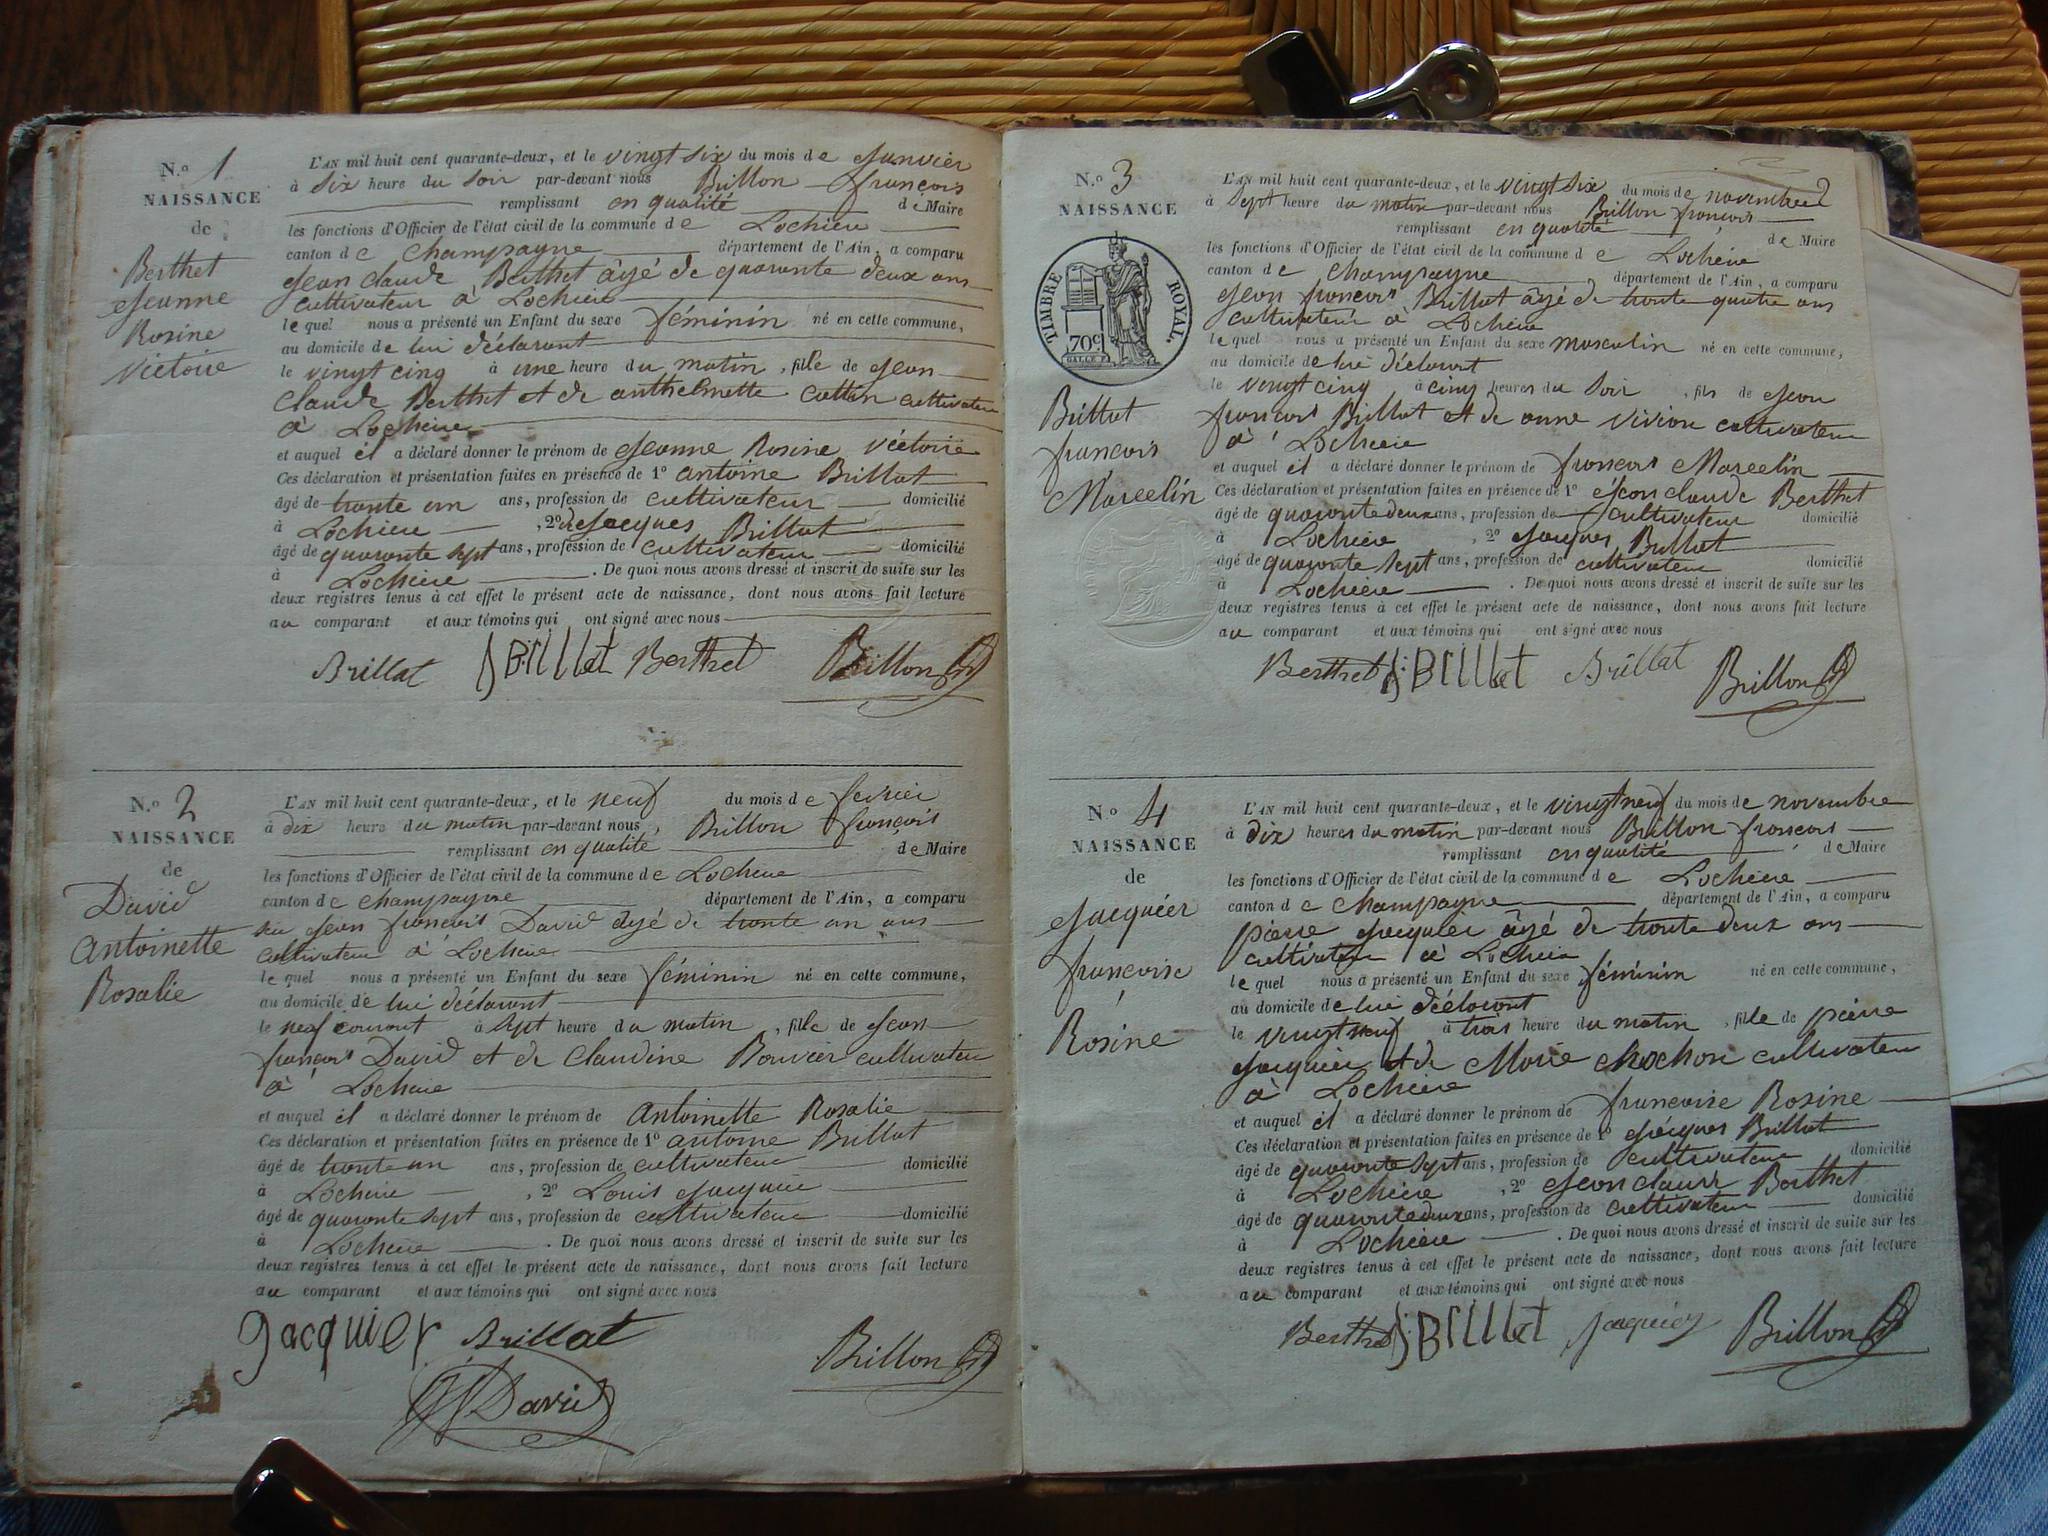 N.º 1
NAISSANCE
de
Berthet
Jeanne
Rosine
Victoire
L'AN mil huit cent quarante-deux, et le vingt six du mois de Janvier
à six heure du soir par-devant nous Brillon françois
remplissant en qualité de Maire
les fonctions d'Officier de l'état civil de la commune de Lochieu
canton de Champagne département de l'Ain, a comparu
Jean claude Berthet âgé de quarante deux ans
cultivateur à Lochieu
le quel nous a présenté un Enfant du sexe féminin né en cette commune,
au domicile de lui déclarant
le vingt cinq à une heure du matin, fille de Jean
claude Berthet et de anthelmette cultivateur
à Lochieu
et auquel il a déclaré donner le prénom de Jeanne Rosine Victoire
Ces déclaration et présentation faites en présence de 1º antoine Brillat
âgé de trente un ans, profession de cultivateur domicilié
à Lochieu, 2º de Jacques Brillat
âgé de quarante sept ans, profession de cultivateur domicilié
à Lochieu. De quoi nous avons dressé et inscrit de suite sur les
deux registres tenus à cet effet le présent acte de naissance, dont nous avons fait lecture
au comparant et aux témoins qui ont signé avec nous
Brillat J BRILLAT Berthet Brillon
N.º 2
NAISSANCE
de
David
Antoinette
Rosalie
L'AN mil huit cent quarante-deux, et le neuf du mois de fevrier
à dix heure du matin par-devant nous, Brillon françois
remplissant en qualité de Maire
les fonctions d'Officier de l'état civil de la commune de Lochieu
canton de champagne département de l'Ain, a comparu
Jean françois David âgé de trente un ans
cultivateur à Lochieu
le quel nous a présenté un Enfant du sexe féminin né en cette commune,
au domicile de lui déclarant
le neuf courant à sept heure du matin, fille de Jean
françois David et de Claudine Bouvier cultivateur
à Lochieu
et auquel il a déclaré donner le prénom de Antoinette Rosalie
Ces déclaration et présentation faites en présence de 1º antoine Brillat
âgé de trente un ans, profession de cultivateur domicilié
à Lochieu, 2º Louis Jacquier
âgé de quarante sept ans, profession de cultivateur domicilié
à Lochieu. De quoi nous avons dressé et inscrit de suite sur les
deux registres tenus à cet effet le présent acte de naissance, dont nous avons fait lecture
au comparant et aux témoins qui ont signé avec nous
Jacquier Brillat Brillon
David
N.º 3
NAISSANCE
TIMBRE ROYAL.
70c
Brillat
françois
Marcelin
L'AN mil huit cent quarante-deux, et le vingt six du mois de novembre
à sept heure du matin par-devant nous Brillon françois
remplissant en qualité de Maire
les fonctions d'Officier de l'état civil de la commune de Lochieu
canton de champagne département de l'Ain, a comparu
Jean françois Brillat âgé de trente quatre ans
cultivateur à Lochieu
le quel nous a présenté un Enfant du sexe masculin né en cette commune,
au domicile de lui déclarant
le vingt cinq à cinq heures du soir, fils de Jean
françois Brillat et de anne cultivateur
à Lochieu
et auquel il a déclaré donner le prénom de françois Marcelin
Ces déclaration et présentation faites en présence de 1º Jean claude Berthet
âgé de quarante deux ans, profession de cultivateur domicilié
à Lochieu, 2º Jacques Brillat
âgé de quarante sept ans, profession de cultivateur domicilié
à Lochieu. De quoi nous avons dressé et inscrit de suite sur les
deux registres tenus à cet effet le présent acte de naissance, dont nous avons fait lecture
au comparant et aux témoins qui ont signé avec nous
Berthet J. BRILLAT Brillat Brillon
Nº 4
NAISSANCE
de
Jacquier
françoise
Rosine
L'AN mil huit cent quarante-deux, et le vingt neuf du mois de novembre
à dix heures du matin par-devant nous Brillon françois
remplissant en qualité de Maire
les fonctions d'Officier de l'état civil de la commune de Lochieu
canton de champagne département de l'Ain, a comparu
pierre Jacquier âgé de trente deux ans
cultivateur à Lochieu
le quel nous a présenté un Enfant du sexe féminin né en cette commune,
au domicile de lui déclarant
le vingt neuf à trois heure du matin, fille de pierre
Jacquier et de Marie cultivateur
à Lochieu
et auquel il a déclaré donner le prénom de françoise Rosine
Ces déclaration et présentation faites en présence de 1º Jacques Brillat
âgé de quarante sept ans, profession de cultivateur domicilié
à Lochieu, 2º Jean claude Berthet
âgé de quarante deux ans, profession de cultivateur domicilié
à Lochieu. De quoi nous avons dressé et inscrit de suite sur les
deux registres tenus à cet effet le présent acte de naissance, dont nous avons fait lecture
au comparant et aux témoins qui ont signé avec nous
Berthet J. BRILLAT Jacquier Brillon